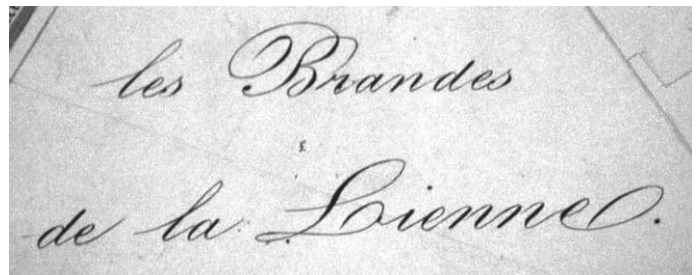 les Brandes
de la Lienne.